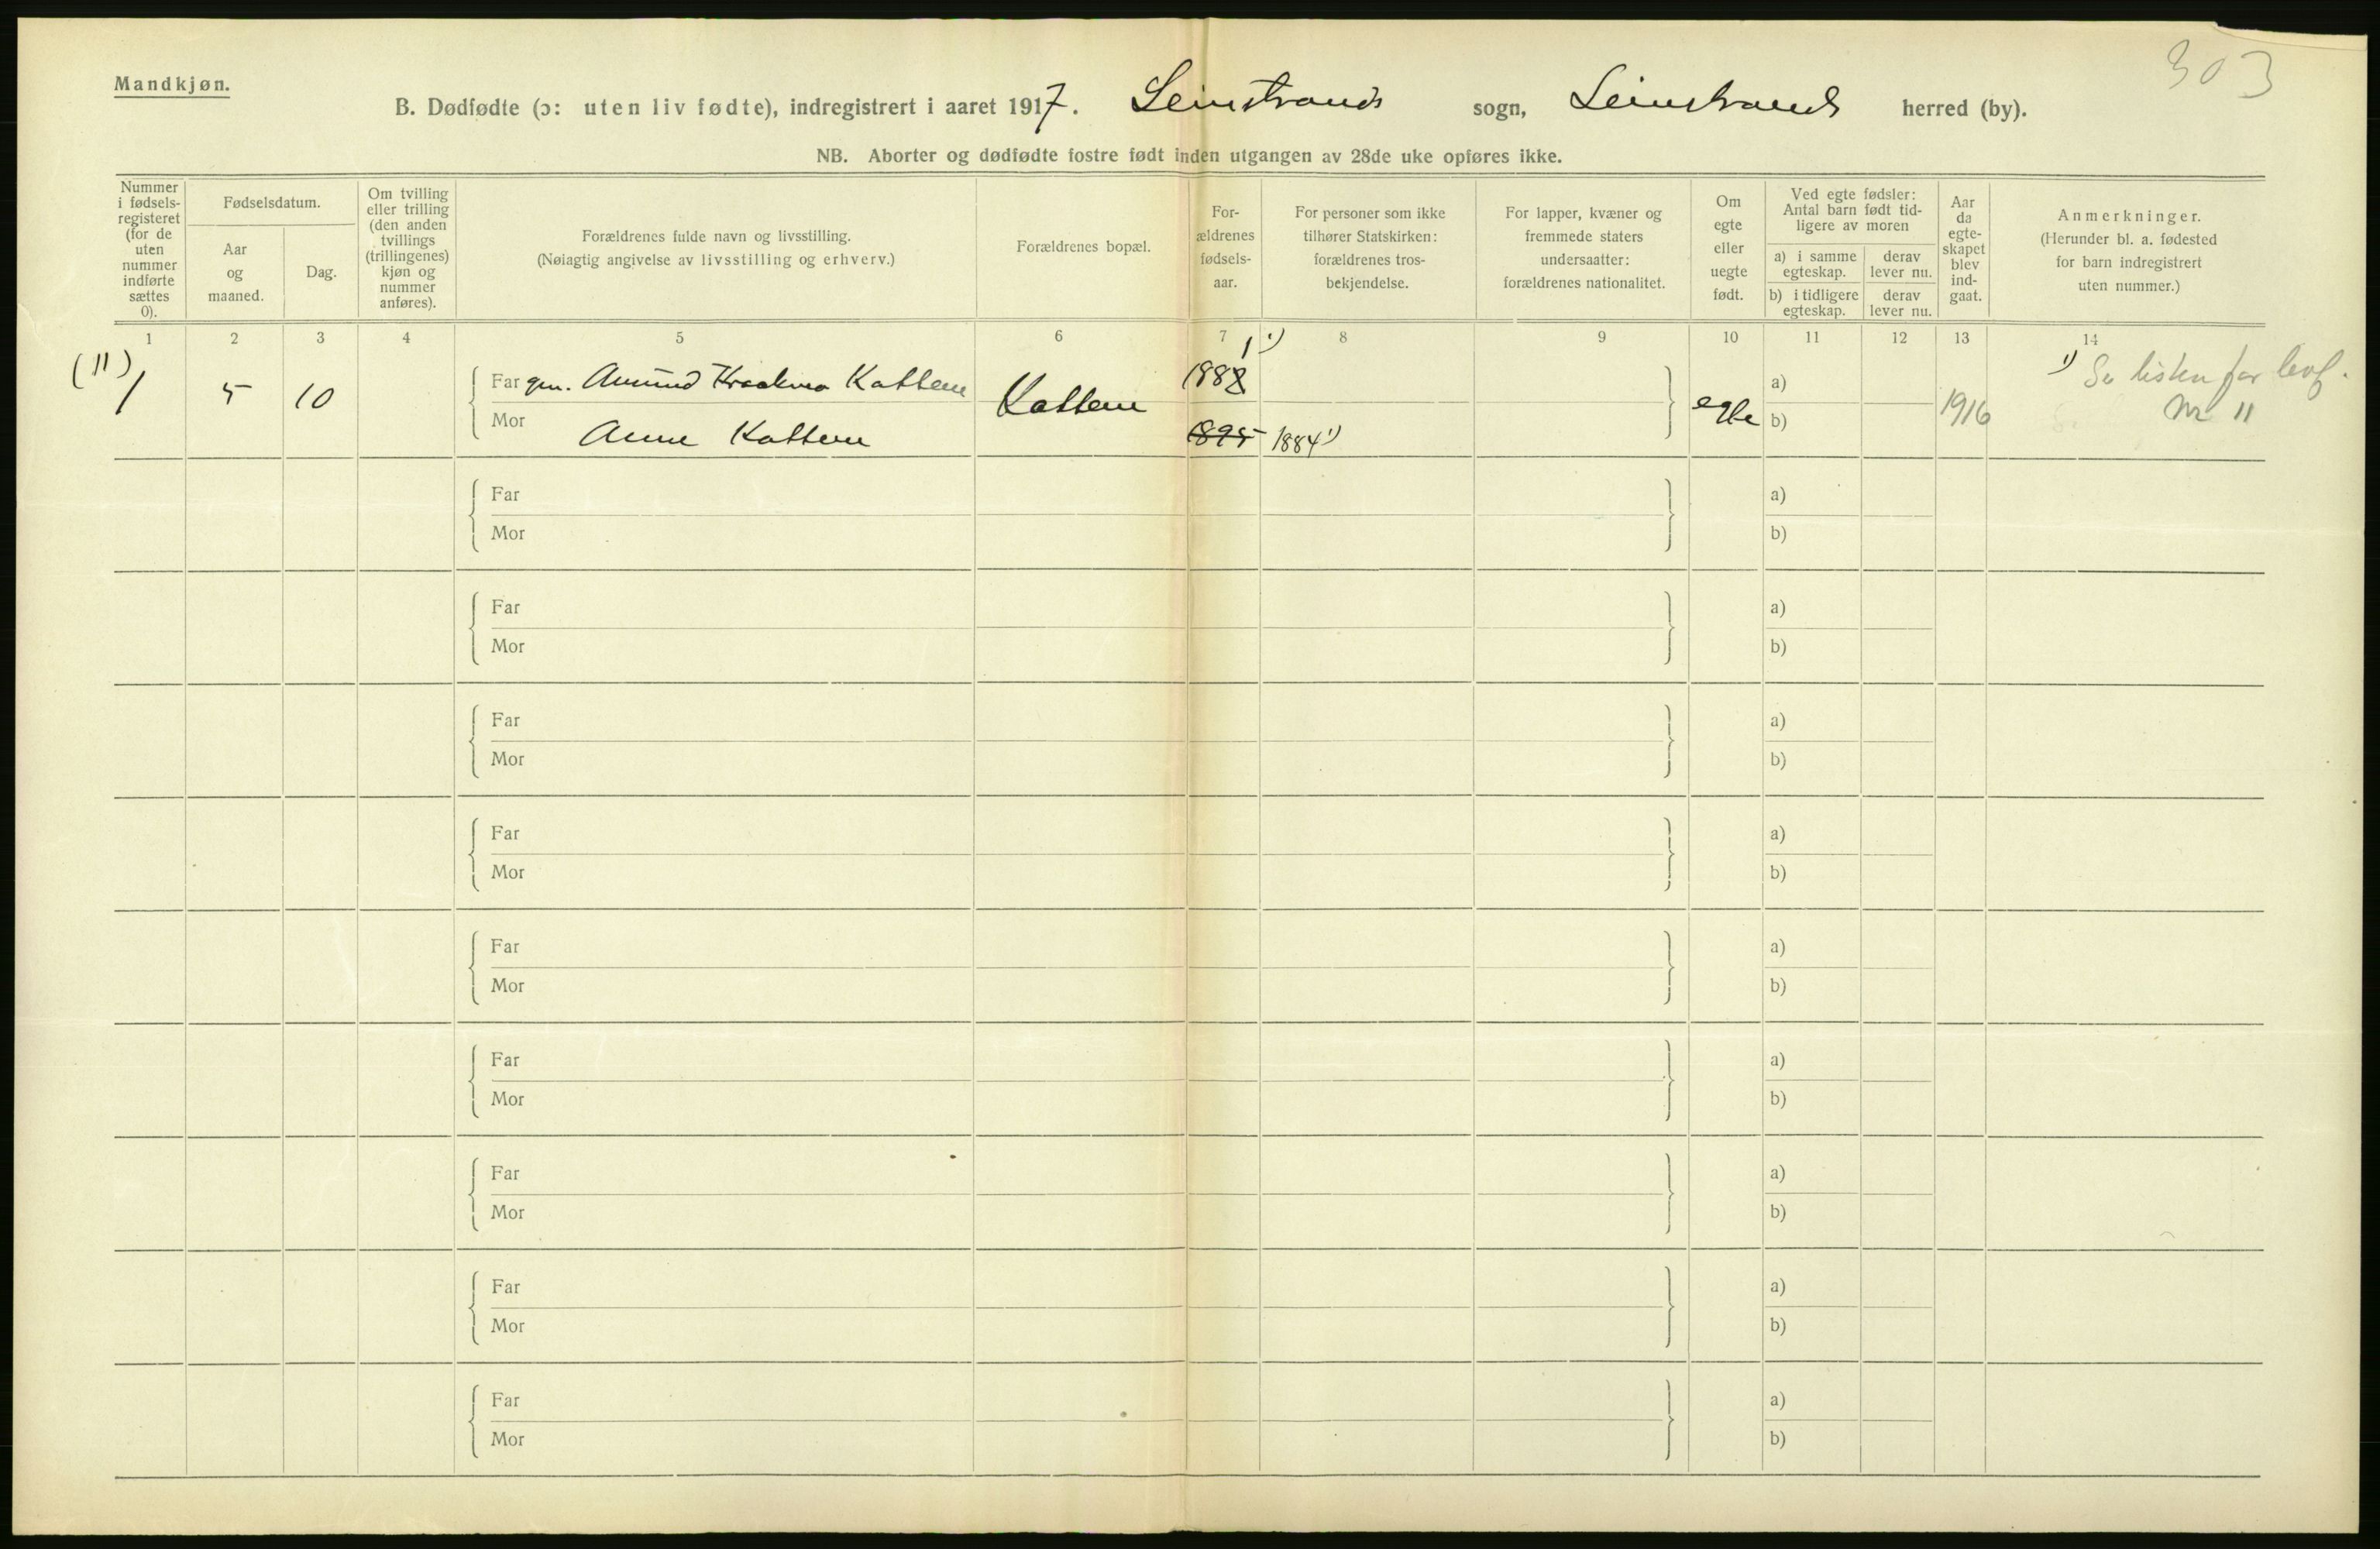 303
Mandkjøn.
B. Dødfødte (ɔ: uten liv fødte), indregistrert i aaret 1917. Leinstrands sogn, Leinstrands herred (by).
NB. Aborter og dødfødte fostre født inden utgangen av 28de uke opføres ikke.
Nummer i fødsels-registeret (for de uten nummer indførte sættes 0).
Fødselsdatum.
Aar og maaned.
Dag.
Om tvilling eller trilling (den anden tvillings (trillingenes) kjøn og nummer anføres).
Forældrenes fulde navn og livsstilling.
(Nøiagtig angivelse av livsstilling og erhverv.)
Forældrenes bopæl.
For-ældrenes fødsels-aar.
For personer som ikke tilhører Statskirken: forældrenes tros-bekjendelse.
For lapper, kvæner og fremmede staters undersaatter: forældrenes nationalitet.
Om egte eller uegte født.
Ved egte fødsler: Antal barn født tid-ligere av moren
a) i samme egteskap.
derav lever nu.
b) i tidligere egteskap.
derav lever nu.
Aar da egte-skapet blev ind-gaat.
Anmerkninger.
(Herunder bl. a. fødested for barn indregistrert uten nummer.)
1 2 3 4 5 6 7 8 9 10 11 12 13 14
(11)
1 5 10
Far gm. Amund Kattem
Mor Anne Kattem
Kattem
1888 1 ¹)
1895 1884 ¹)
egte
a)
b)
1916
¹) Se listen for levf.
Nr 11
Far a)
Mor b)
Far a)
Mor b)
Far a)
Mor b)
Far a)
Mor b)
Far a)
Mor b)
Far a)
Mor b)
Far a)
Mor b)
Far a)
Mor b)
Far a)
Mor b)